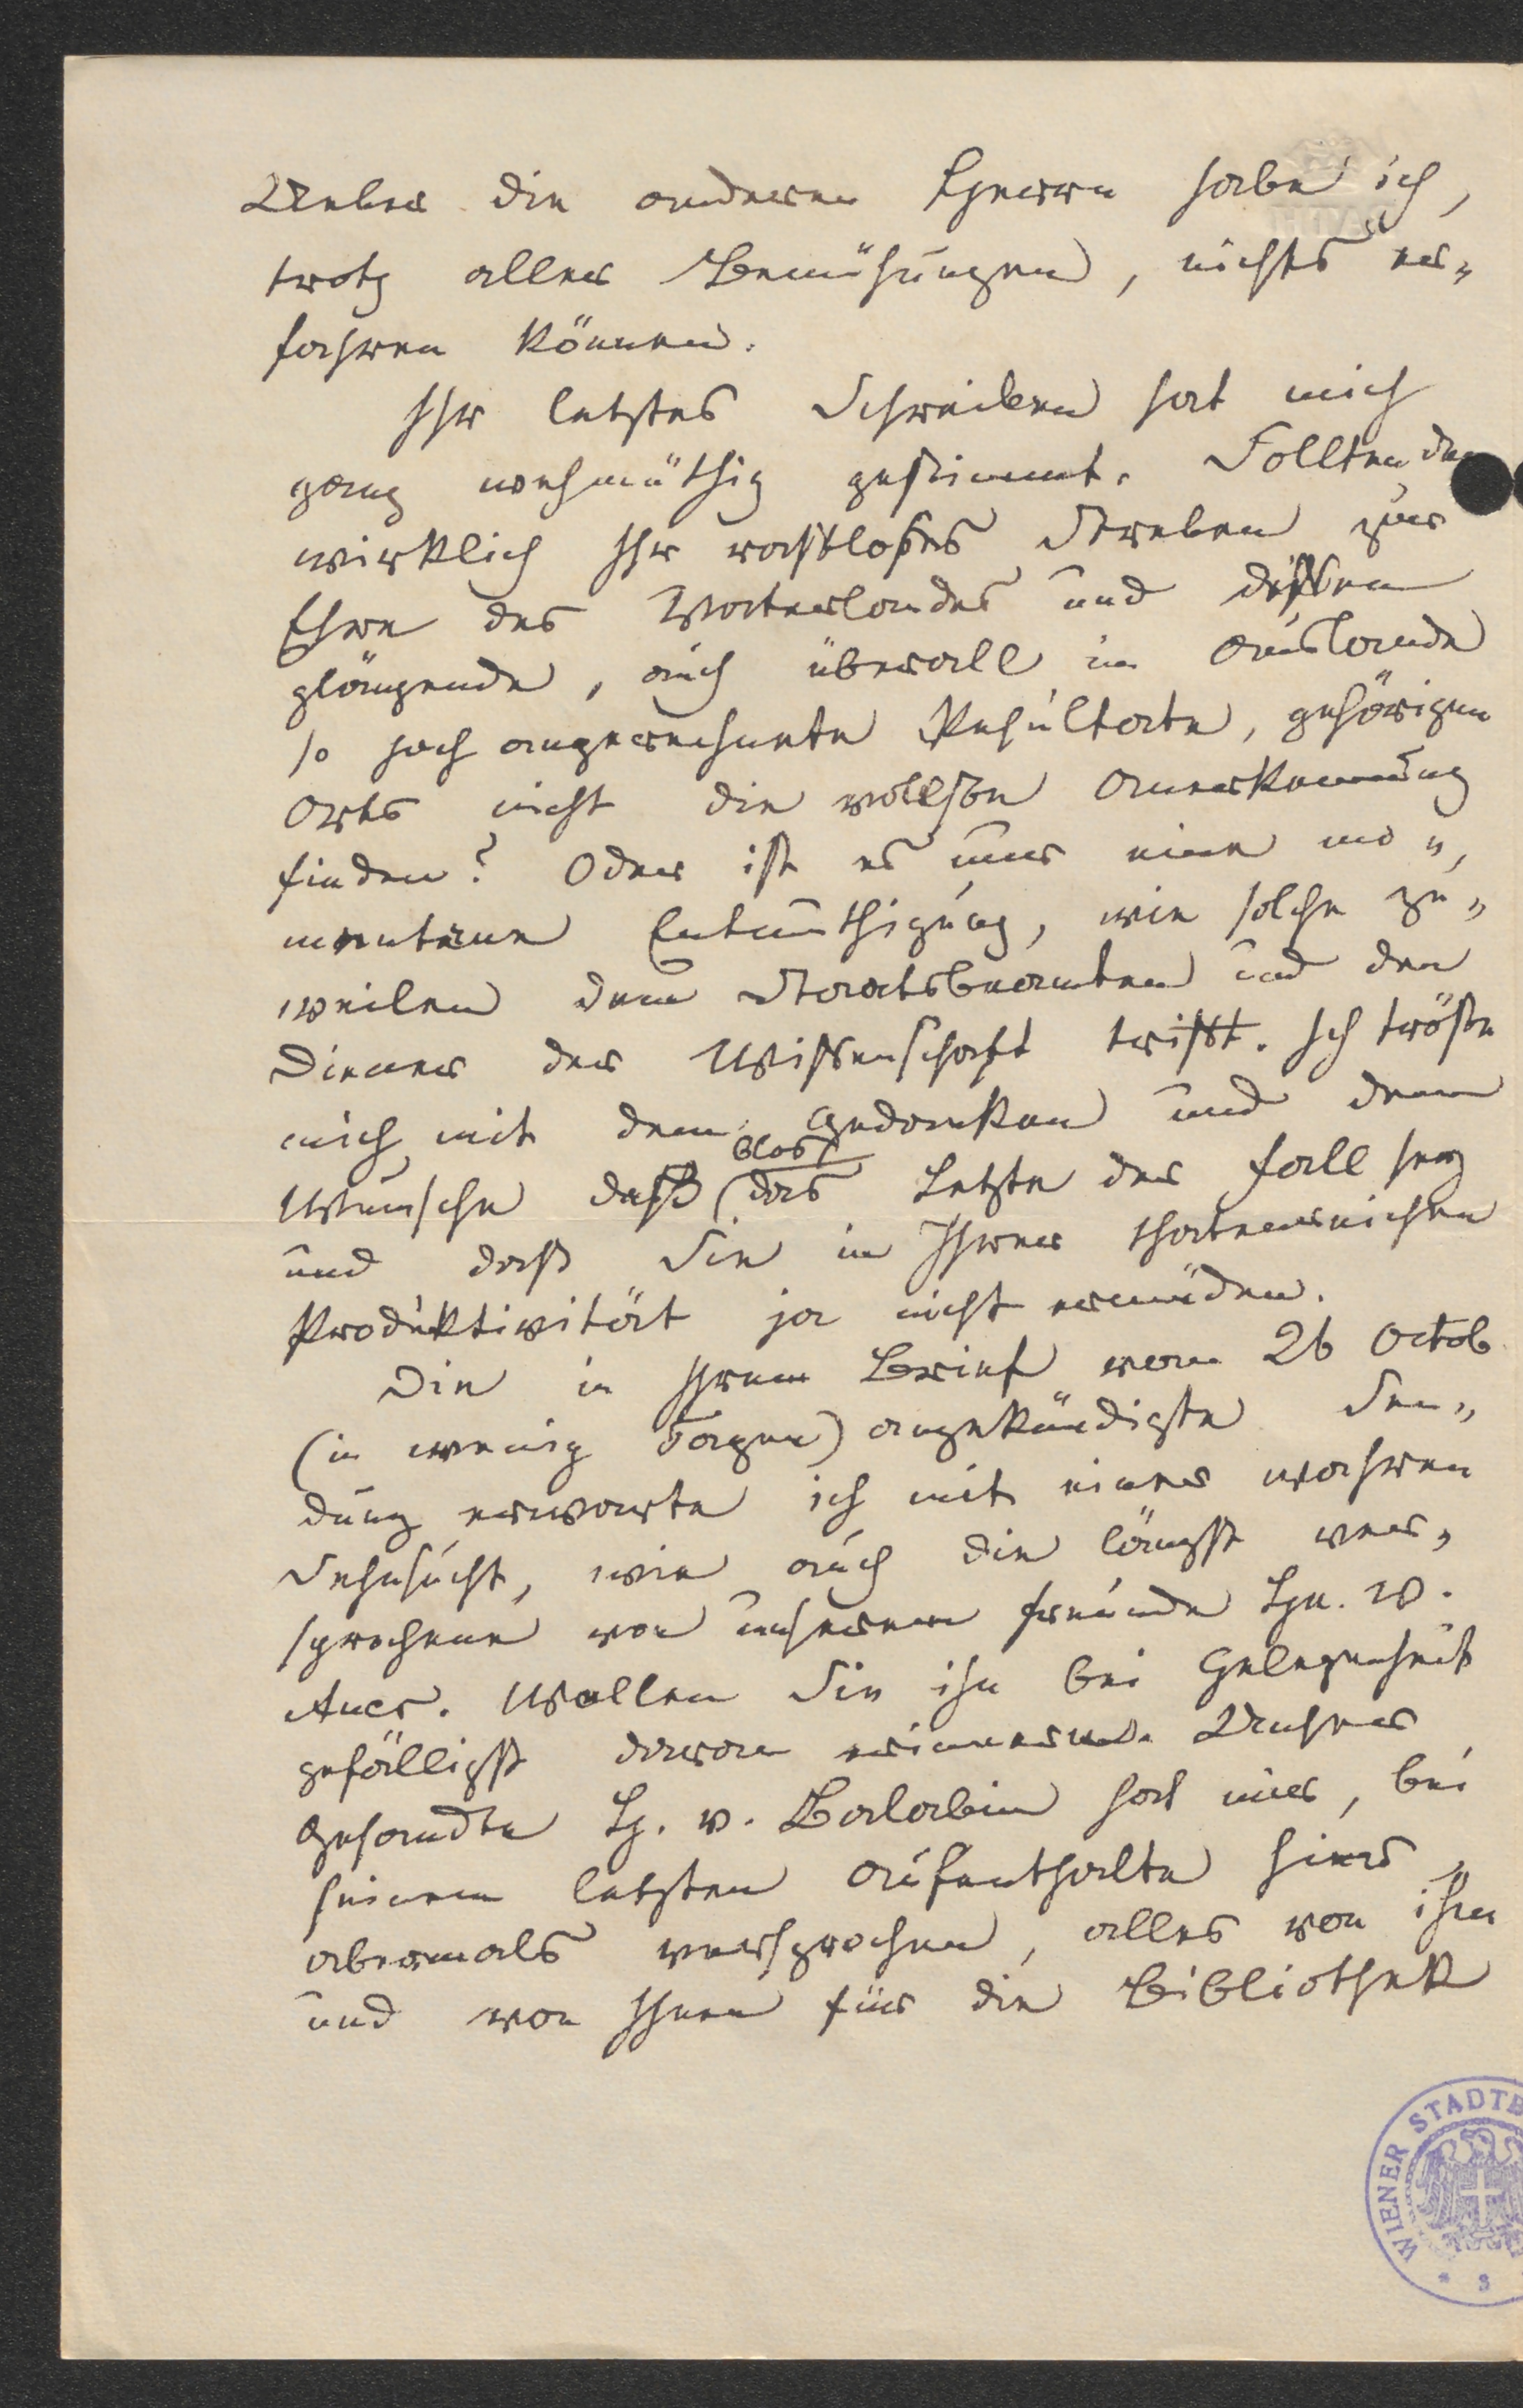 Ueber die anderen Herrn habe ich,
trotz aller Bemühungen, nichts er„
fahren können.
Ihr letztes Schreiben hat mich
ganz wehmüthig gestimmt. Sollten den
wirklich Ihr rastloses Streben zur
Ehre des Vaterlandes und dessen
glänzende, auch überall im Auslande
so hoch angerechnete Resultate, gehörigen
Orts nicht die vollste Anerkennung
finden? Oder ist es nur eine mo„
mentane Entmuthigung, wie solche zu„
weilen dem Staatsbeamten und den
Diener der Wissenschaft trifft. Ich tröste
mich mit dem Gedanken und dem
blos
Wunsche daß das Letzte der Fall sey
und daß Sie in Ihrer thatenreichen
Produktivität ja nicht ermüden.
Die in Ihrem Brief vom 26 Octob
(in wenig Tagen) angekündigte Sen„
dung erwarte ich mit einer wahren
Sehnsucht, wie auch die längst ver„
sprochene von unserem Freunde Hn. v.
Auer. Wollen Sie ihn bei Gelegenheit
gefälligst daran erinnern. Unser
Gesandte H. v. Balabin hat mir, bei
seinem letzten Aufenthalte hier,
abermals versprochen, alles von ihm
und von Ihnen für die Bibliothek
WIENER STADTB
* 3